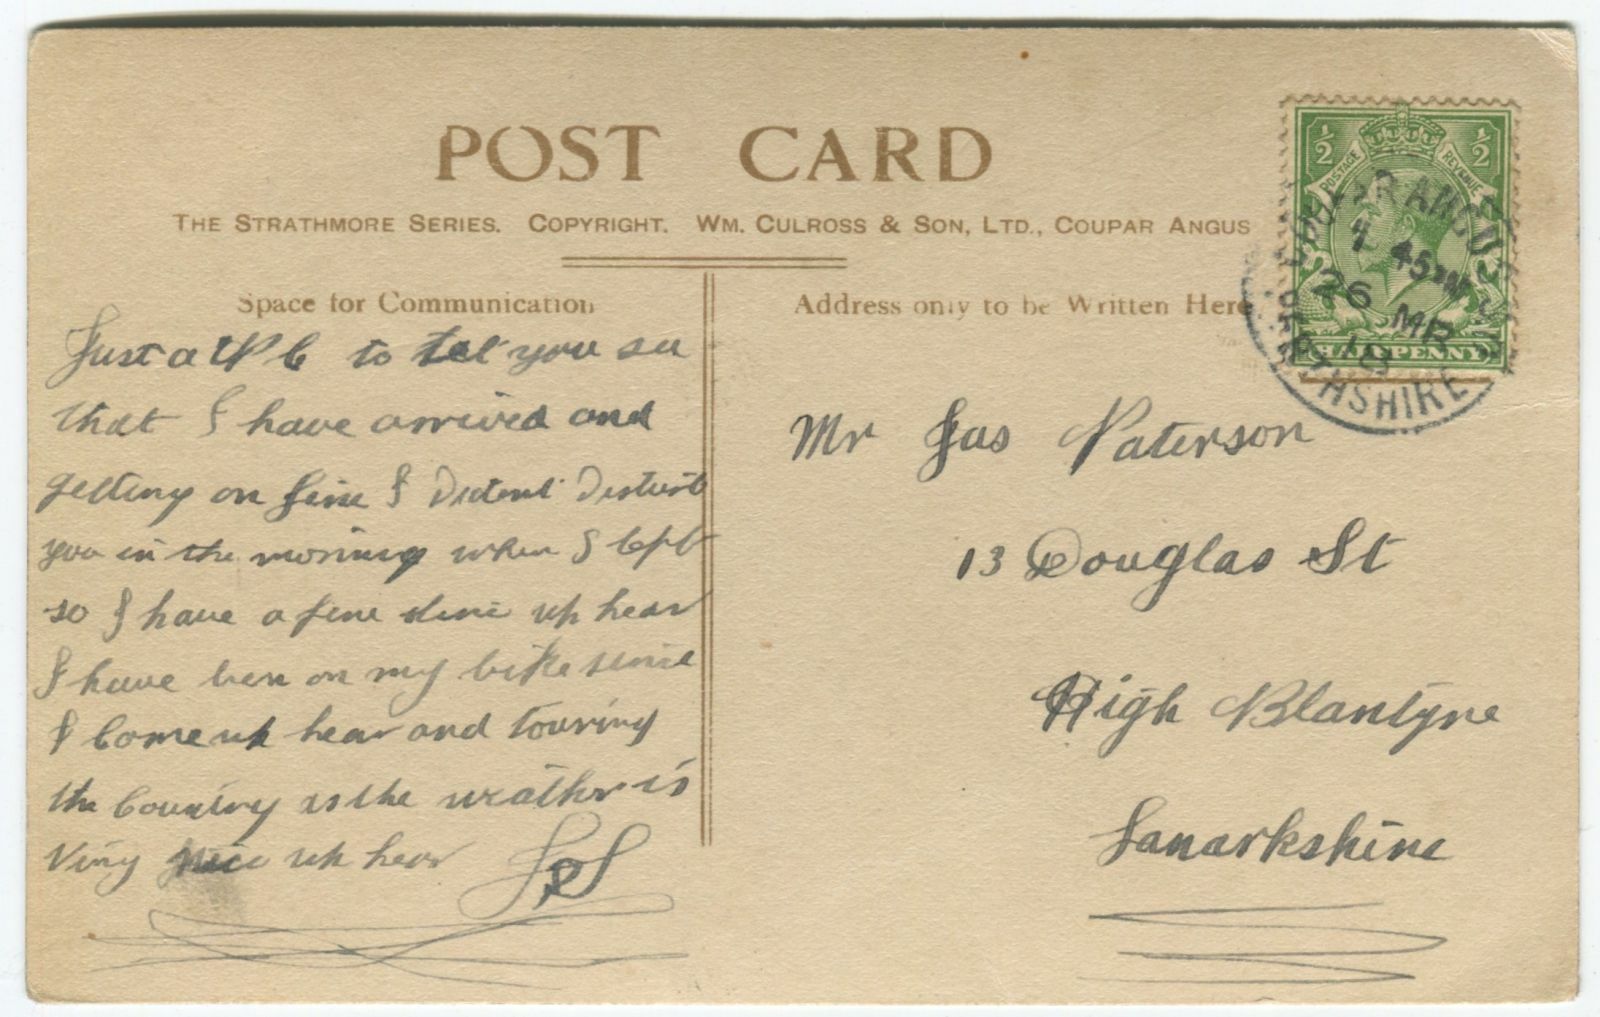 POST CARD
THE STRATHMORE SERIES. COPYRIGHT. WM. CULROSS & SON, LTD., COUPAR ANGUS
Space for Communication
Just a P C to tel you
that I have arrived and
getting on fine I Dident Disturb
you in the morning when I left
so I have a fine time up hear
I have ben on my bike since
I Come up hear and touring
the Country as the weather is
Viry Nice up hear
Address only to be Written Here
Mr Jas Paterson
13 Douglas St
High Blantyre
Lanarkshire
½ ½
POSTAGE REVENUE
HALFPENNY
COUPAR ANGUS
45 PM
26 MR
18
PERTHSHIRE